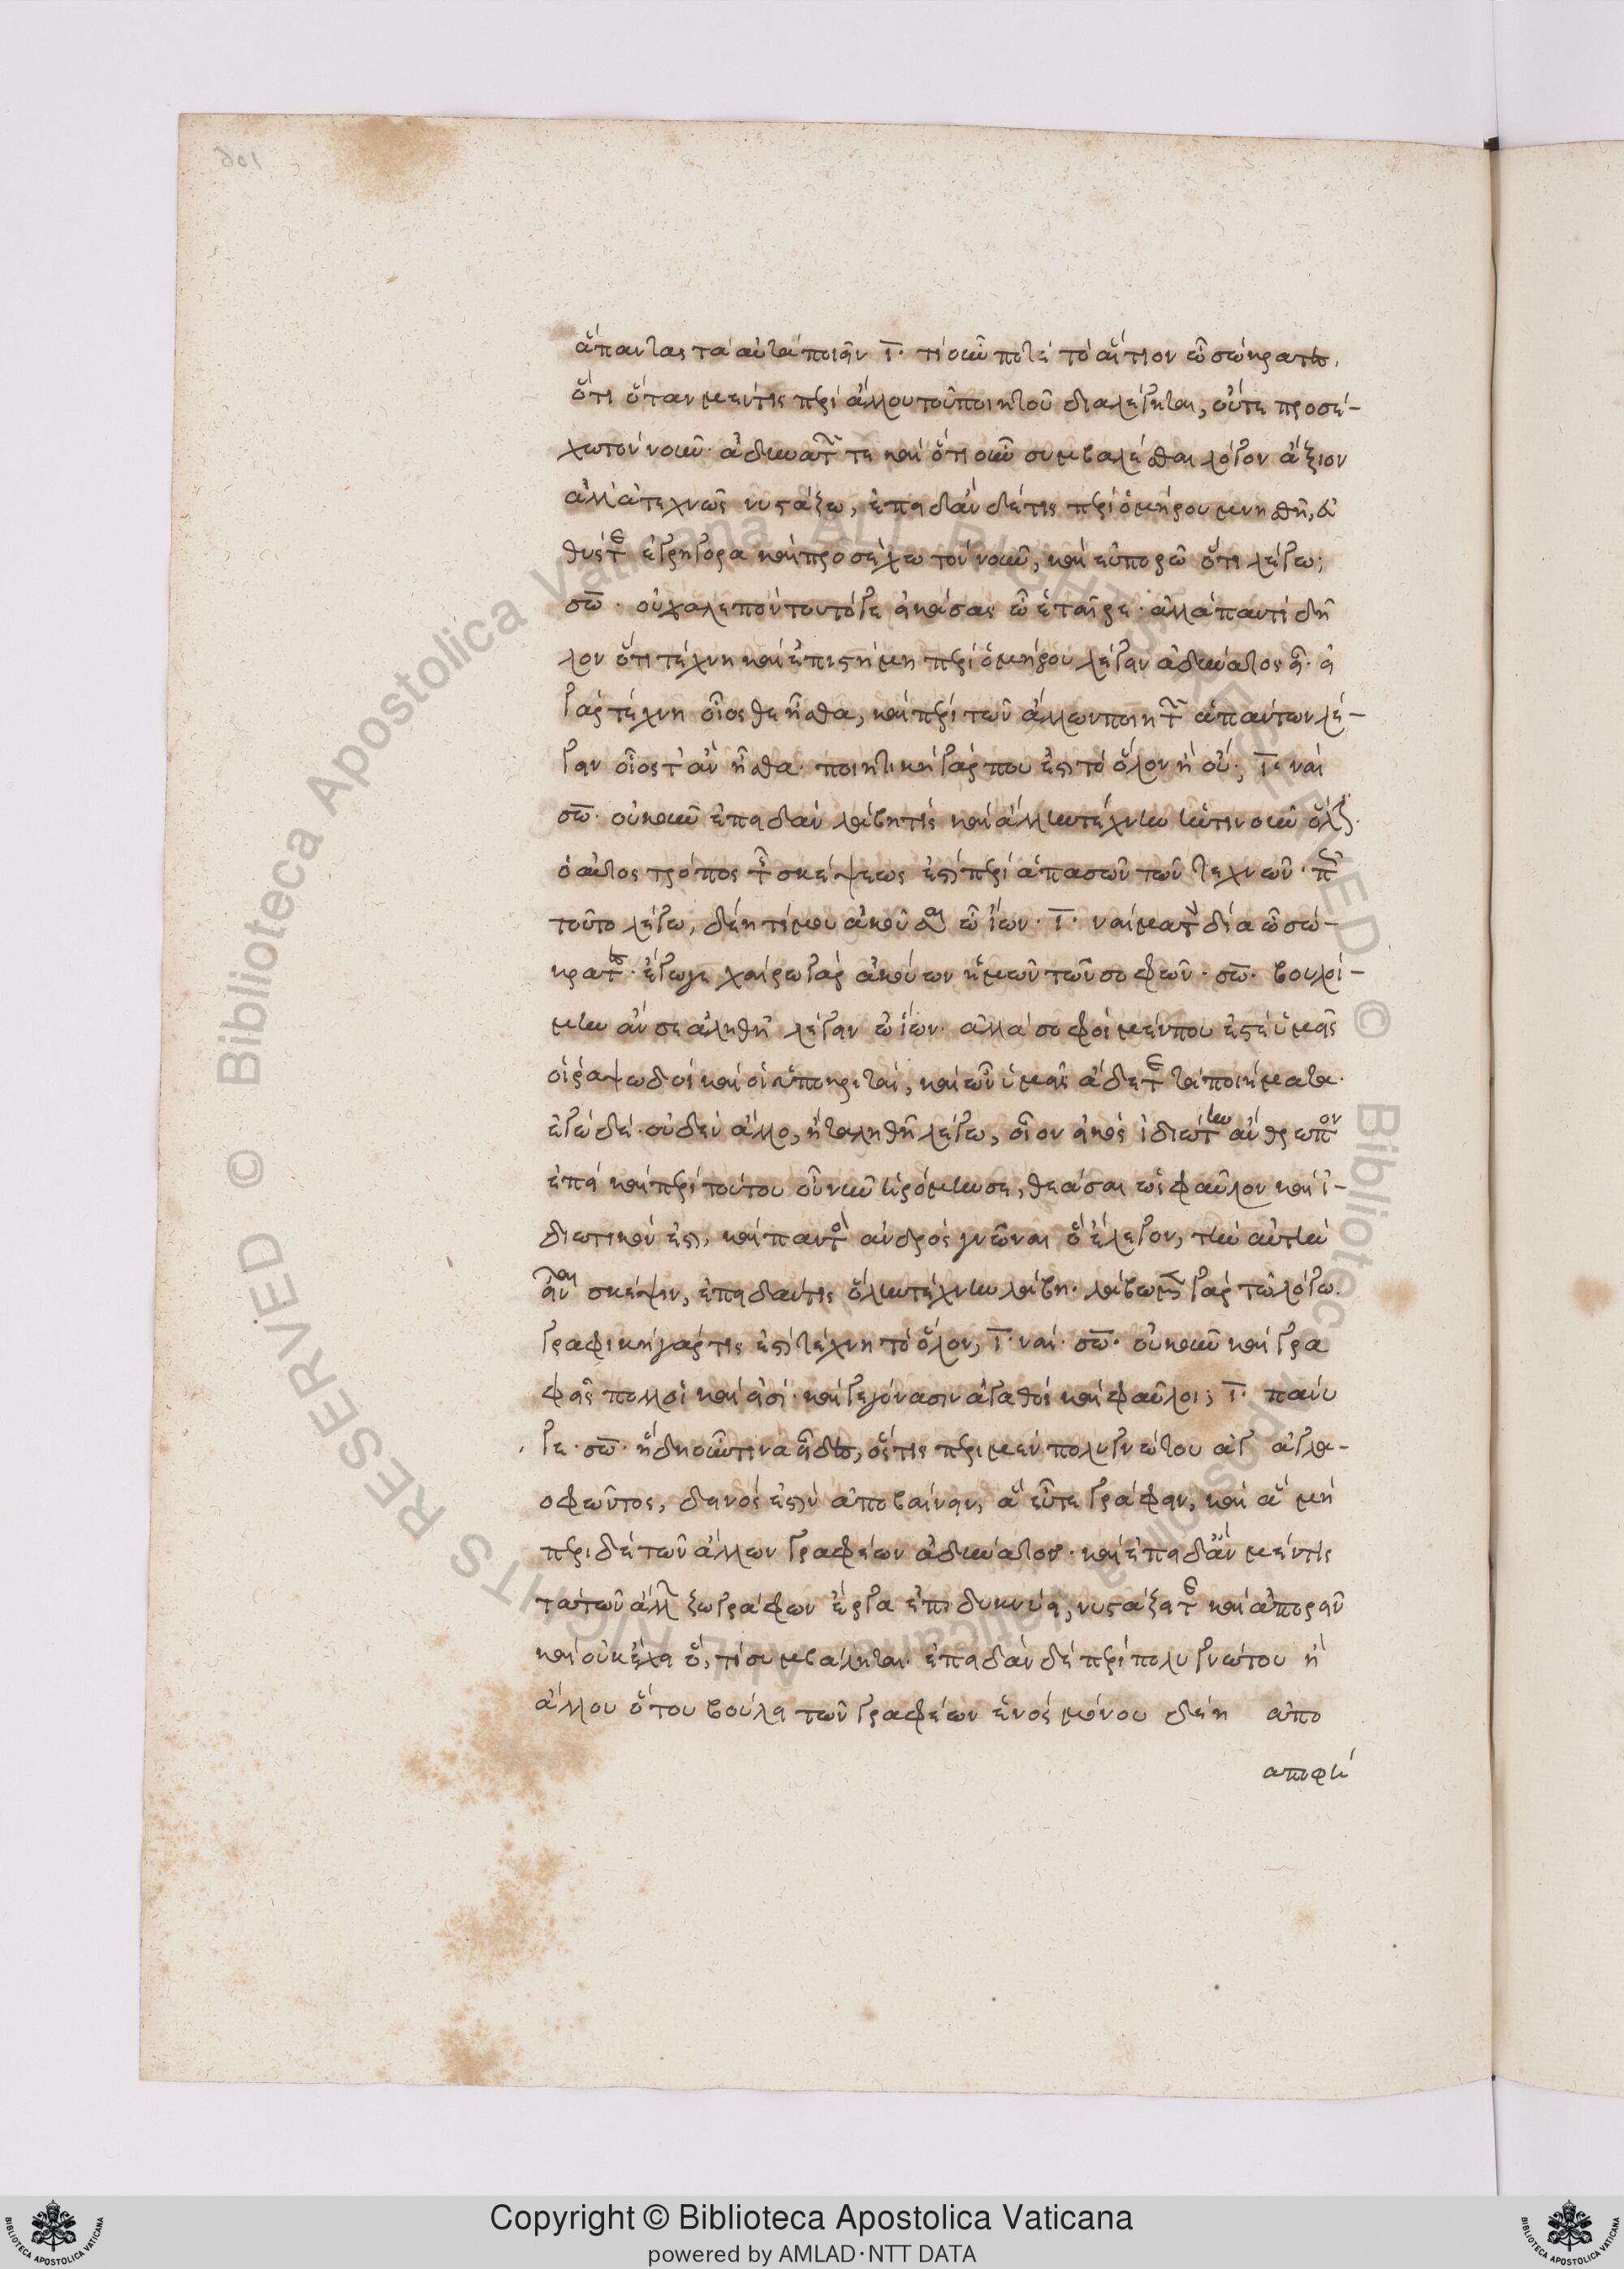 ἅπαντας τὰ αὐτὰ ποιεῖν. ῑ. τί οὖν ποτὲ τὸ αἴτιον ὦ σώκρατες,
ὅτι ὅταν μέν τις περὶ ἄλλου τοῦ ποιητοῦ διαλέγηται, οὔτε προσέ-
χω τὸν νοῦν· ἀδυνατῶ τε καὶ ὅτι οὖν συμβαλέσθαι λόγον ἄξιον
ἀλλ' ἀτεχνῶς νυστάζω, ἐπειδὰν δέ τις περὶ ὁμήρου μνησθῆ, εὐ
θύς τε ἐγρήγορα καὶ προσέχω τὸν νοῦν, καὶ εὐπορῶ ὅτι λέγω;
σω̄. οὐ χαλεπὸν τοῦτό γε εἰκάσαι ὦ ἑταῖρε· ἀλλὰ παντὶ δῆ
λον ὅτι τέχνη καὶ ἐπιστήμη περὶ ὁμήρου λέγειν ἀδύνατος εἶ. εἰ
γὰρ τέχνη οἷός τε ἦσθα, καὶ περὶ τῶν ἄλλων ποιητῶν ἁπάντων λέ-
γειν οἷός τ' ἂν ἦσθα· ποιητικὴ γάρ που ἐστὶ τὸ ὅλον ἢ οὔ; ῑ. ναί
σω̄. οὐκοῦν ἐπειδὰν λάβη τις καὶ ἄλλην τέχνην ἥντιν οὖν ὅλην.
ὁ αὐτὸς τρόπος τῆς σκέψεως ἐστὶ περὶ ἁπασῶν τῶν τεχνῶν· πῶς
τοῦτο λέγω, δέη τί μου ἀκοῦσαι ὦ ἴων. ῑ. ναὶ μὰ τὸν δία ὦ σώ-
κρατες· ἔγωγε χαίρω γὰρ ἀκούων ὑμῶν τῶν σοφῶν. σω̄. βουλοί-
μην ἄν σε ἀληθῆ λέγειν ὦ ἴων· ἀλλὰ σοφοὶ μέν που ἐστὲ ὑμεῖς
οἱ ῥαψωδοὶ καὶ οἱ ὑποκριταί, καὶ ὧν ὑμεῖς ἄδετε τὰ ποιήματα.
ἐγὼ δὲ· οὐδὲν ἄλλο, ἢ τἀληθῆ λέγω, οἷον εἰκὸς ἰδιώτην ἄνθρωπον
ἐπεὶ καὶ περὶ τούτου οὗ νῦν ἠρόμην σε, θέασαι ὡς φαῦλον καὶ ἰ-
διωτικόν ἐστι, καὶ παντὸς ἀνδρὸς γνῶναι ὃ ἔλεγον, τὴν αὐτὴν
εἶναι σκέψιν, ἐπειδάν τις ὅλην τέχνην λάβη· λάβωμεν γὰρ τῶ λόγω.
γραφικὴ γάρ τις ἐστὶ τέχνη τὸ ὅλον; ῑ. ναί. σω̄. οὐκοῦν καὶ γρα
φεῖς πολλοὶ καὶ εἰσί· καὶ γεγόνασιν ἀγαθοὶ καὶ φαῦλοι; ῑ. πάνυ
γε. σω̄. ἤδη οὖν τινα εἶδες, ὅς τις περὶ μὲν πολυγνώτου ἀγ ἀγλα-
οφῶντος, δεινός ἐστὶν ἀποβαίνειν, ἃ εὖ τε γράφειν, καὶ ἃ μὴ
περὶ δὲ τῶν ἄλλων γραφέων ἀδύνατον· καὶ ἐπειδὰν μέν τις
τὰ τῶν ἄλλων ζωγράφων ἔργα ἐπιδεικνύη, νυστάζει τε καὶ ἀπορεῖ
καὶ οὐκ ἔχει ὅ, τι συμβάληται· ἐπειδὰν δὲ περὶ πολυγνώτου ἢ
ἄλλου ὅτου βούλει τῶν γραφέων ἑνὸς μόνου δέη ἀπο
αποφή
Copyright © Biblioteca Apostolica Vaticana
powered by AMLAD·NTT DATA